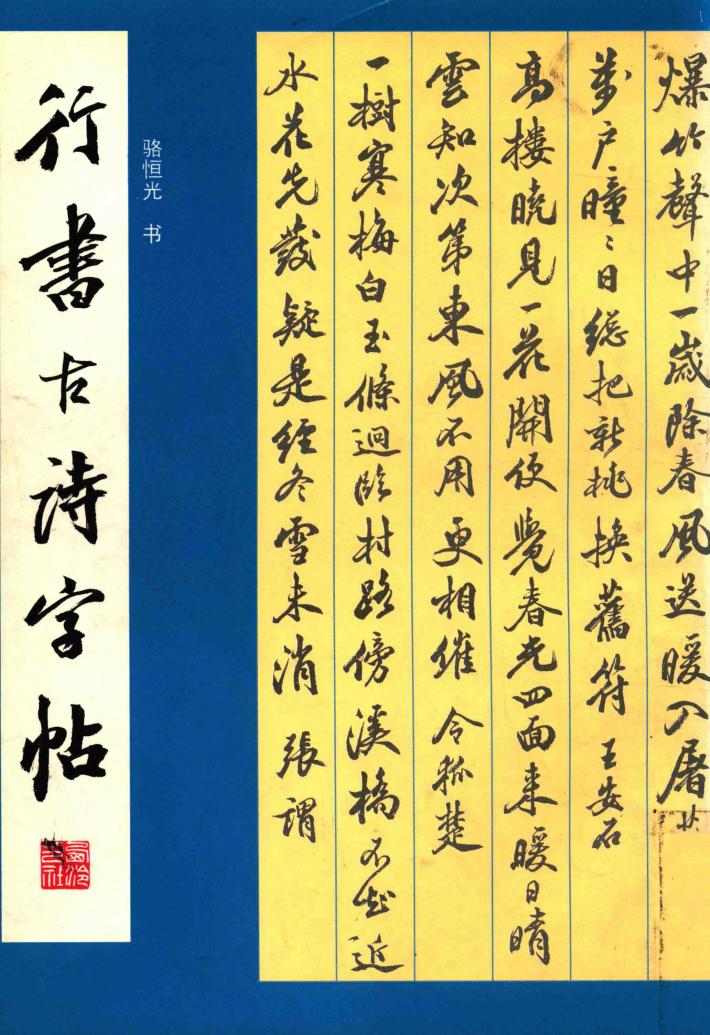 爆竹聲中一歲除春風送暖入屠
萬戶曈〻日總把新桃換舊符 王安石
高樓曉見一花開便覺春光四面來暖日晴
雲知次第東風不用更相催 令狐楚
一樹寒梅白玉條迥臨村路傍溪橋不知近
水花先發疑是經冬雪未消 張謂
骆恒光 书
行書古詩字帖
西泠印社